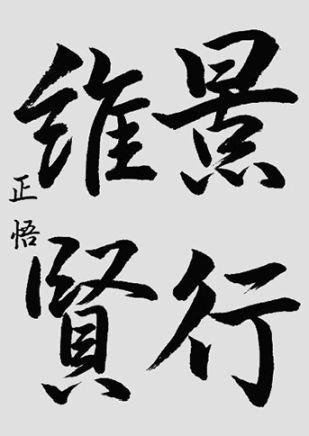 景行
維賢
正悟